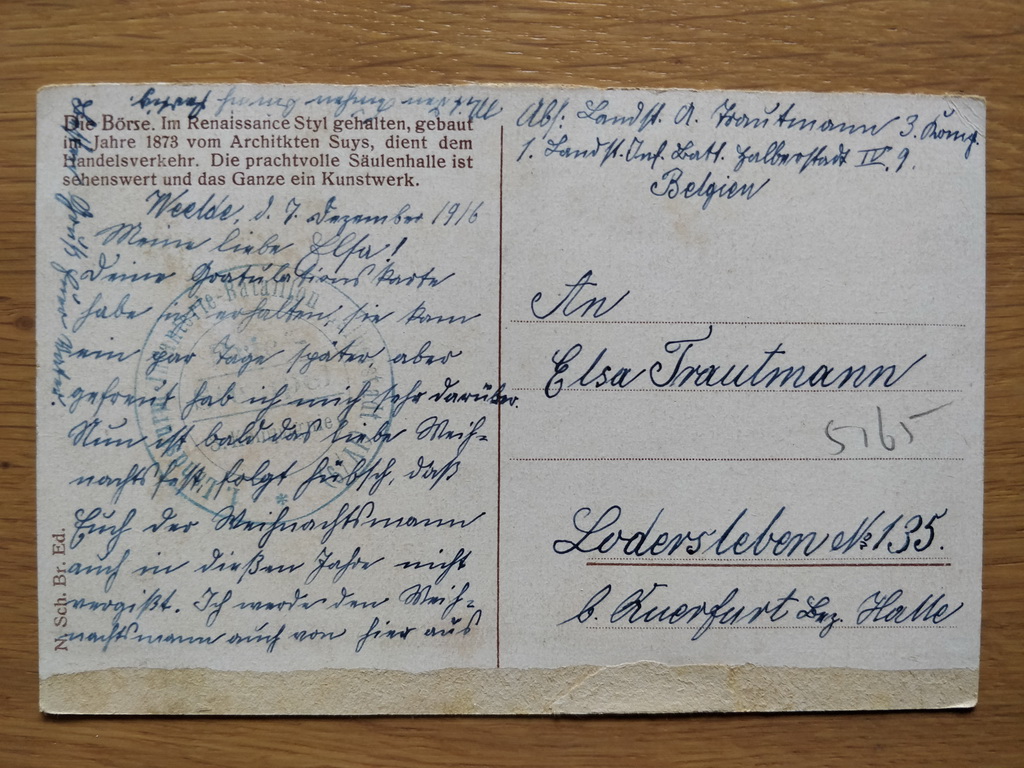 Die Börse. Im Renaissance Styl gehalten, gebaut
im Jahre 1873 vom Architkten Suys, dient dem
Handelsverkehr. Die prachtvolle Säulenhalle ist
sehenswert und das Ganze ein Kunstwerk.
Weelde, d. 7. Dezember 1916
Meine liebe Elsa!
Deine Gratulationskarte
habe ich erhalten, sie kam
ein par Tage später aber
gefreut hab ich mich sehr darüber.
Nun ist bald das liebe Weih-
nachtsfest, folgt hübsch, daß
Euch der Weihnachtsmann
auch in dießen Jahre nicht
vergißt. Ich werde den Weih-
nachtsmann auch von hier aus
Gruß Euer Vater
N. Sch. Br. Ed.
Abs. Landst. A. Trautmann 3. Komp.
1. Landst. Inf. Batl. Halberstadt IV. 9.
Belgien
An
Elsa Trautmann
5165
Lodersleben No 135.
b. Querfurt Bez. Halle